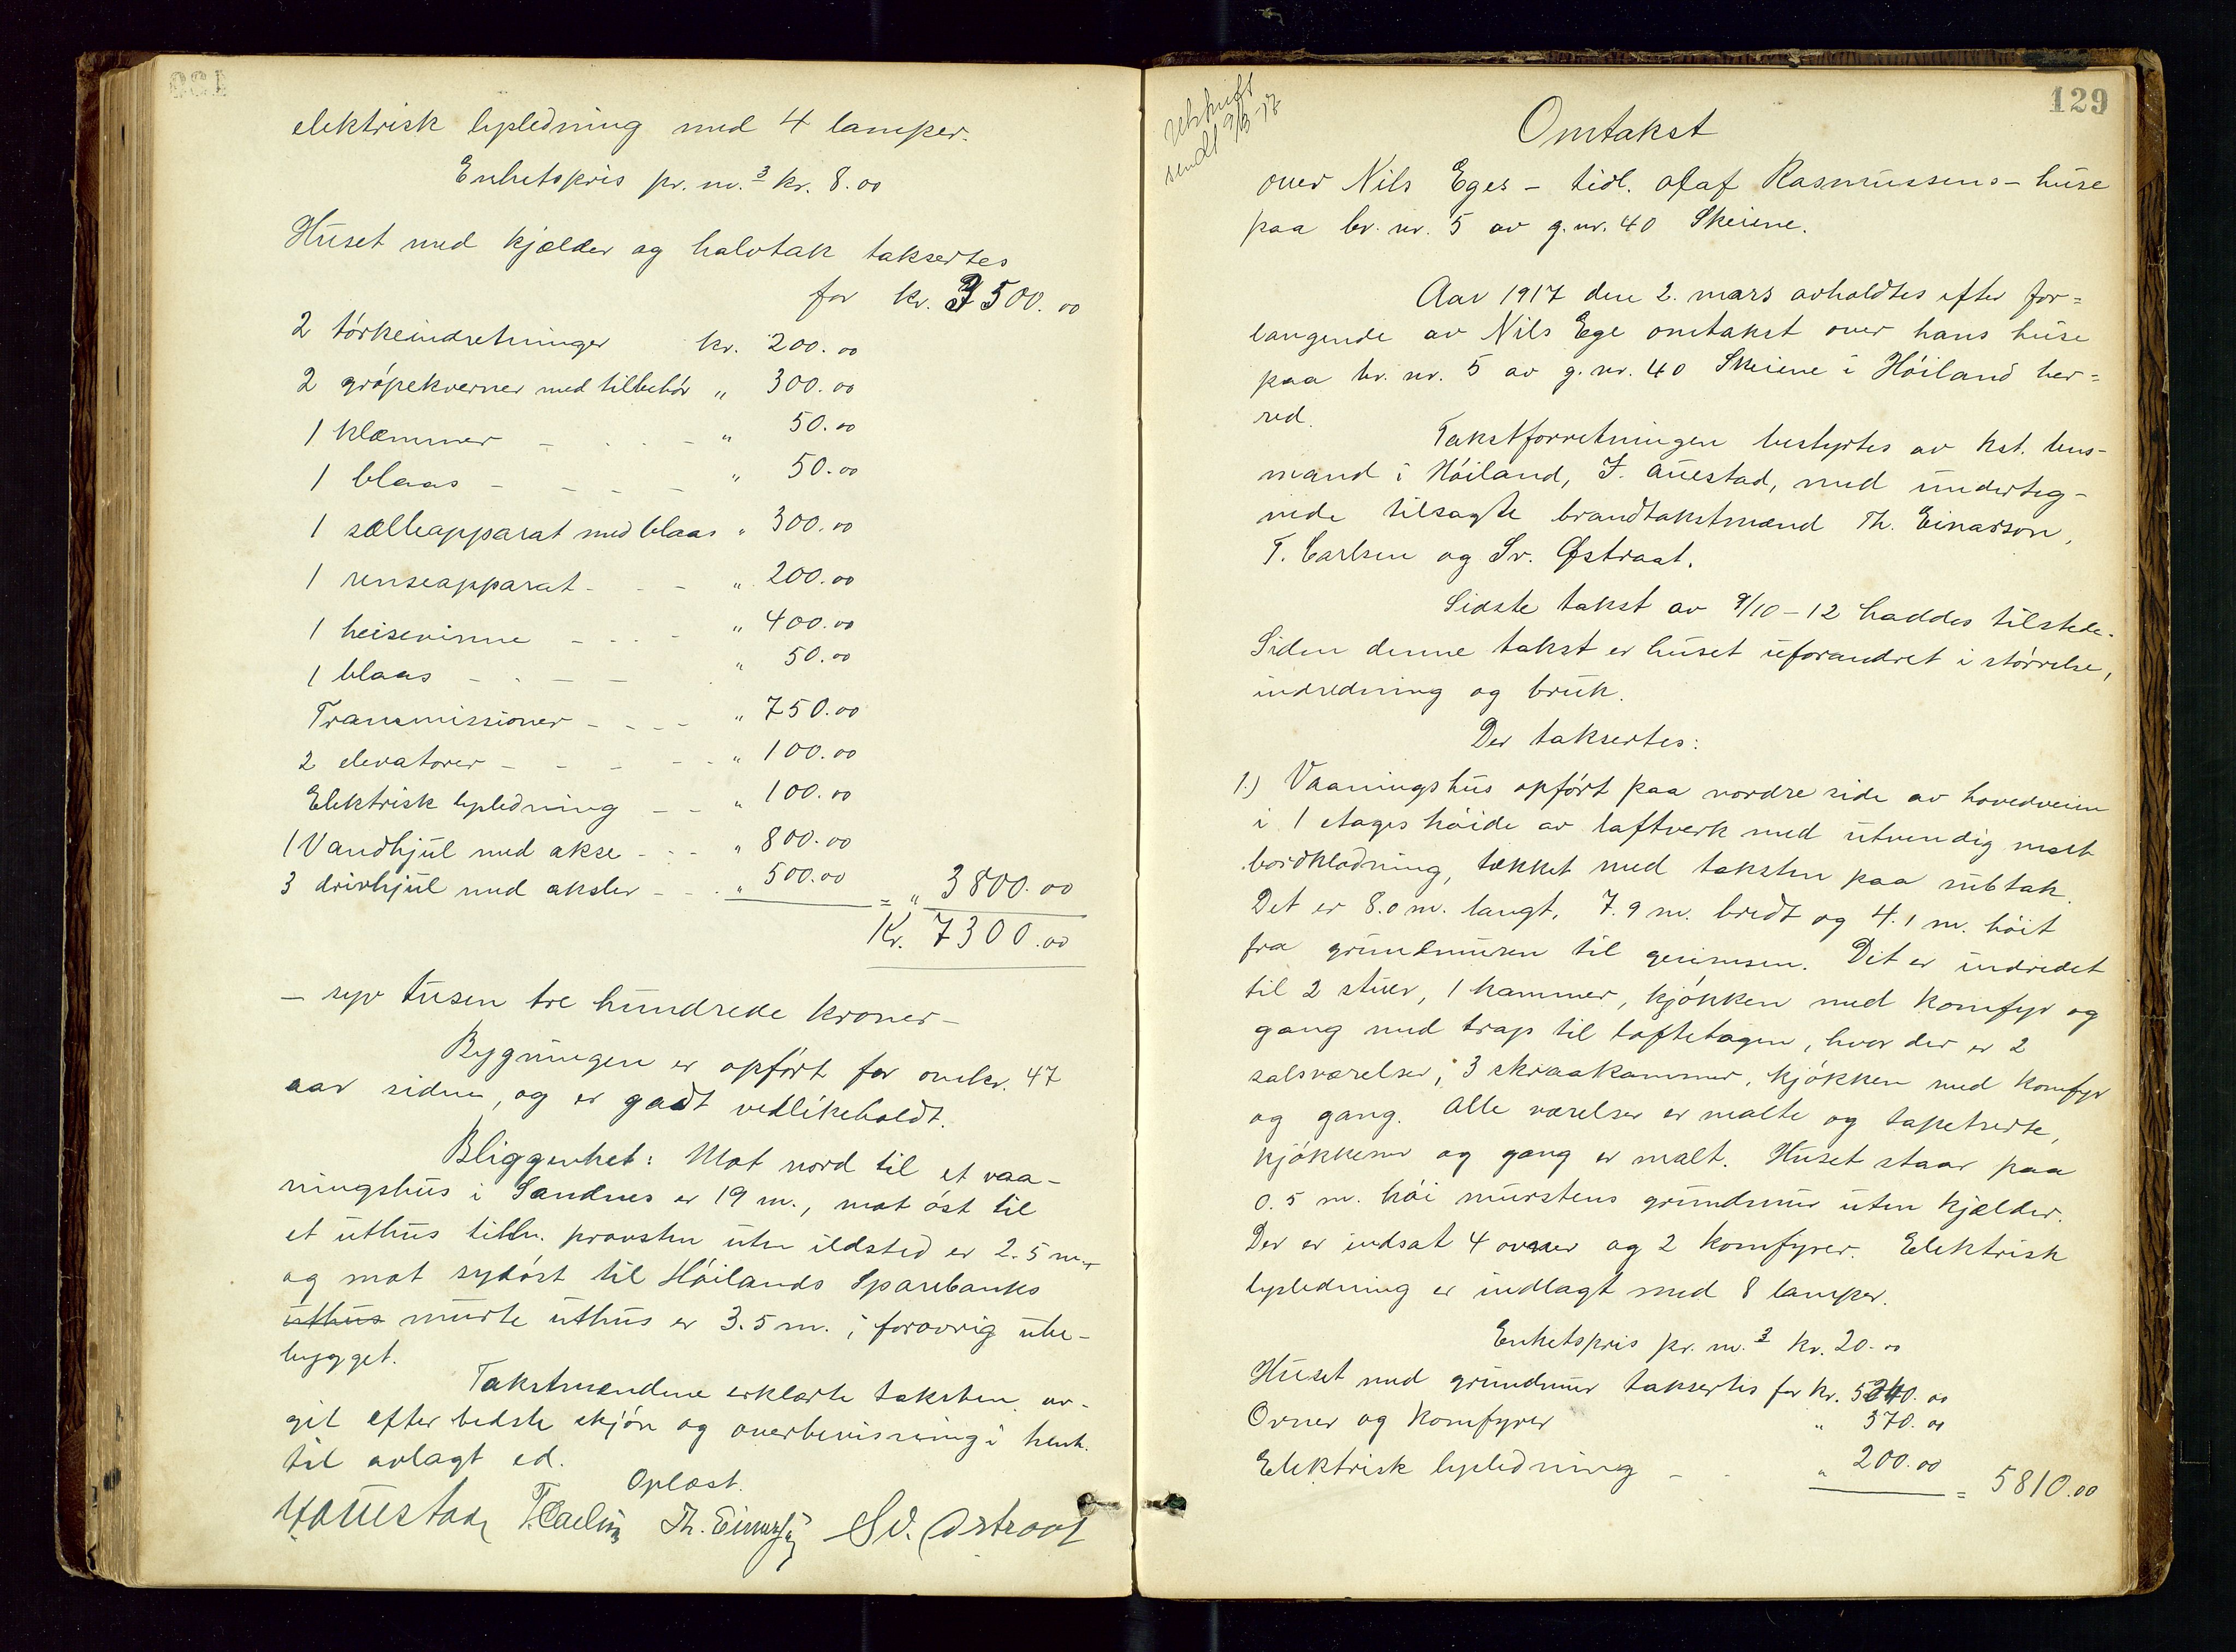 elektrisk lysledning med 4 lamper.
Enhetspris pr. m.3 kr. 8.00
Huset med kjælder og halvtak taksertes
for kr. 3500.00
2 tørkeindretninger kr. 200.00
2 grøpekverner med tilbehør " 300.00
1 klemmer - . . - " 50.00
1 blaas - - - - " 50.00
1 sælleapparat med blaas " 300.00
1 renseapparat - - - " 200.00
1 heisevinne - - . - " 400.00
1 blaas - . - - " 50.00
Transmissioner - - . - " 750.00
2 elevatorer - - - - . " 100.00
Elektrisk lysledning - - " 100.00
1 Vandhjul med akse - . - " 800.00
3 drivhjul med aksler - - . " 500.00 = " 3800.00
Kr. 7300.00
- syv tusen tre hundrede kroner -
Bygningen er opført for omkr. 47
aar siden, og er godt vedlikeholdt.
Bliggenhet: Mot nord til et vaa-
ningshus i Sandnes er 19 m., mot øst til
et uthus tilhr. provsten uten ildsted er 2.5 m.
og mot sydøst til Høilands Sparebanks
uthus murte uthus er 3.5 m. ; forøvrig ube-
bygget.
Takstmændene erklærte taksten av-
git efter bedste skjøn og overbevisning i henh.
til avlagt ed.
Oplæst.
Auestad T. Carlsen Th. Einarson Sv. Østraat
129
Utskrift
sendt 9/3-17
Omtakst
over Nils Eges - tidl. Olaf Rasmussens - huse
paa br. nr. 5 av g. nr. 40 Skeiene.
Aar 1917 den 2. mars avholdtes efter for=
langende av Nils Ege omtakst over hans huse
paa br. nr. 5 av g. nr. 40 Skeiene i Høiland her=
red.
Takstforretningen bestyrtes av kst. lens-
mand i Høiland, J. Auestad, med underteg-
nede tilsagte brandtakstmænd Th. Einarson,
T. Carlsen og Sv. Østraat.
Sidste takst av 9/10-12 haddes tilstede.
Siden denne takst er huset uforandret i størrelse,
indredning og bruk.
Der taksertes:
1.) Vaaningshus opført paa nordre side av hovedveien
i 1 etages høide av laftverk med utvendig malt
bordklædning, tækket med taksten paa subtak.
Det er 8.0 m. langt, 7.9 m. bredt og 4.1 m. høit
fra grundmuren til gesimsen. Det er indredet
til 2 stuer, 1 kammer, kjøkken med komfyr og
gang med trap til loftetagen, hvor der er 2
salsværelser, 3 skraakammer, kjøkken med komfyr
og gang. Alle værelser er malte og tapetserte,
kjøkkener og gang er malt. Huset staar paa
0.5 m. høi murstens grundmur uten kjælder.
Der er indsat 4 ovner og 2 komfyrer. Elektrisk
lysledning er indlagt med 8 lamper.
Enhetspris pr. m.3 kr. 20.00
Huset med grundmur taksertes for kr. 5240.00
Ovner og komfyrer " 370.00
Elektrisk lysledning - . " 200.00
= 5810.00